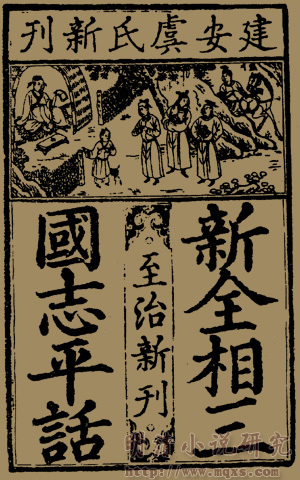 建安虞氏新刊
新全相三
至治新刊
國志平話
小说研究
http://www.mqxs.com